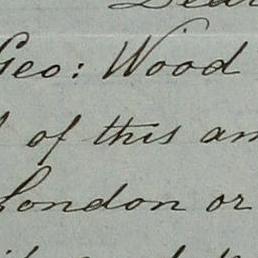 Dear
Geo: Wood
of this am
London or